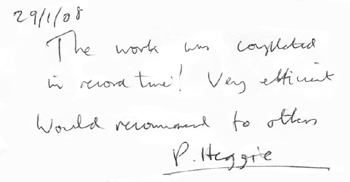 29/1/08
The work was completed
in record time! Very efficient
Would recommend to others
P. Heggie